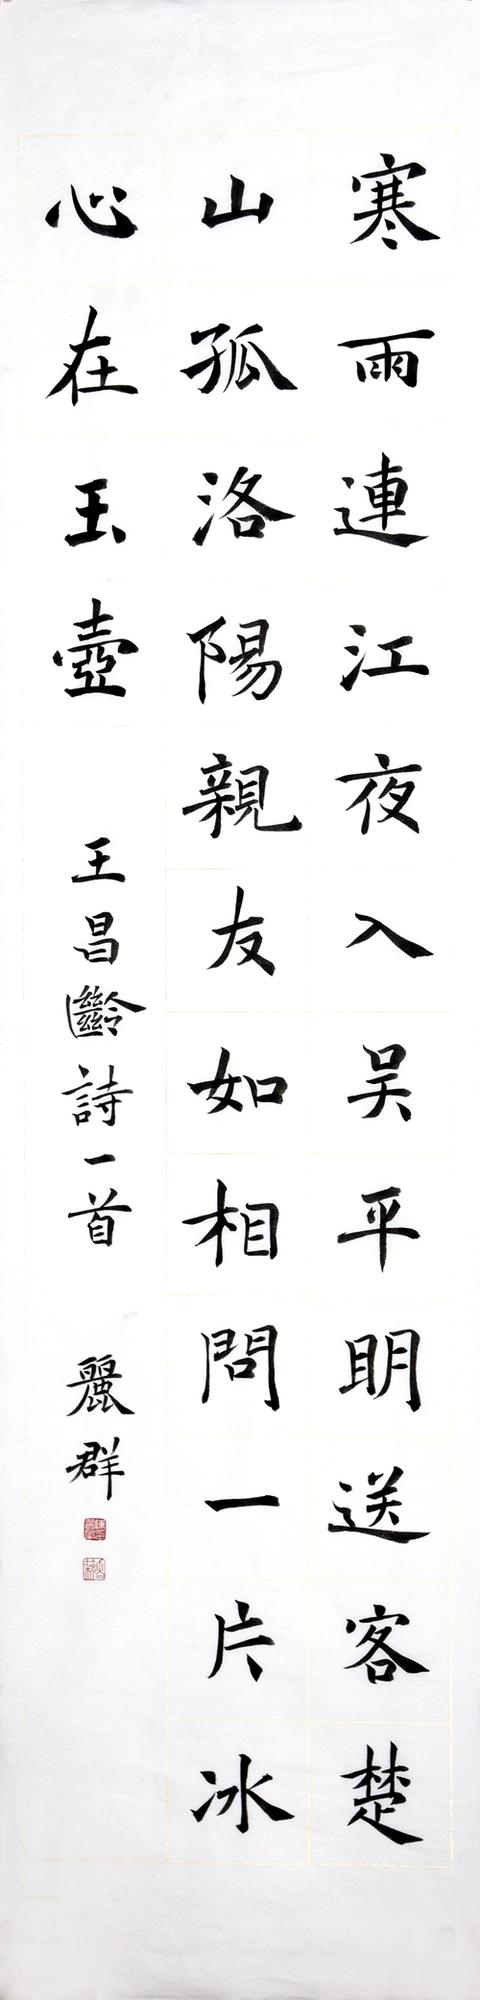 寒雨連江夜入吴平明送客楚
山孤洛陽親友如相問一片冰
心在玉壺
王昌齡詩一首
麗群